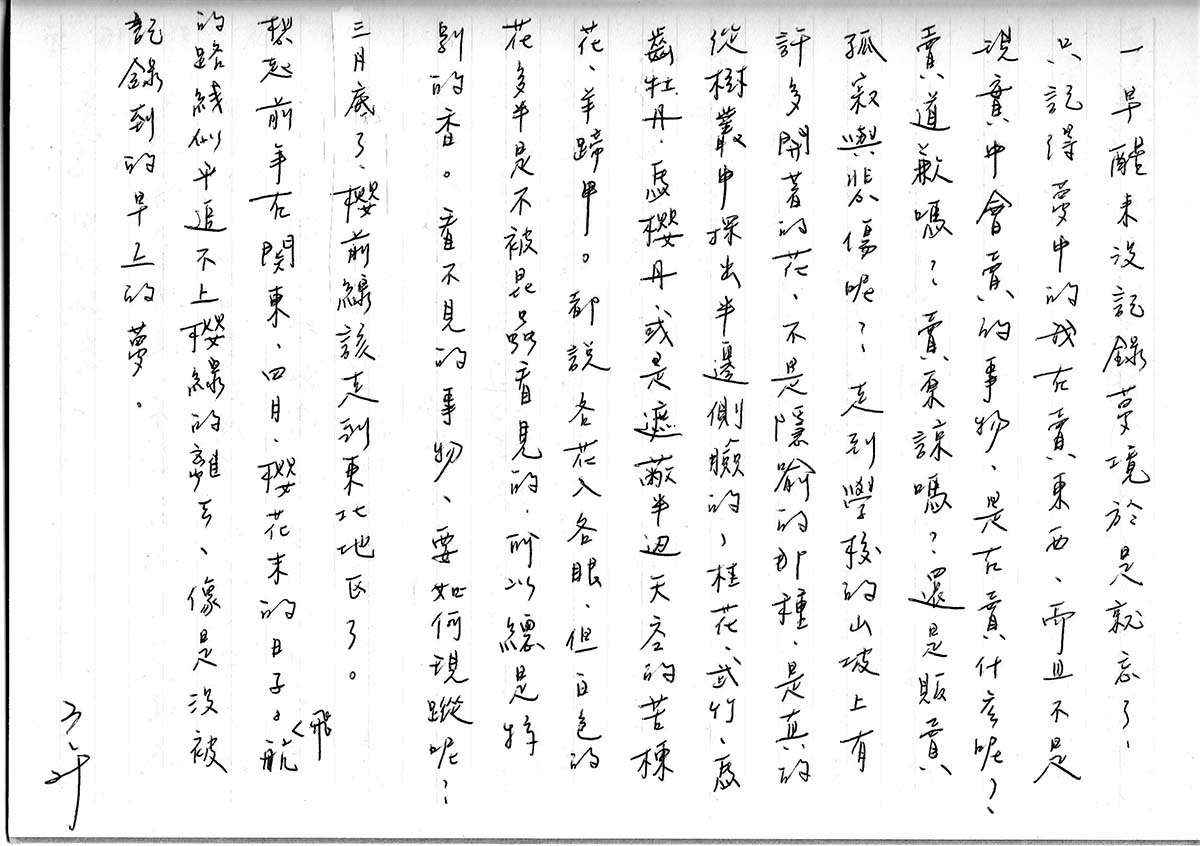 一早醒來沒記錄夢境於是就忘了、
只記得夢中的我在賣東西、而且不是
現實中會賣的事物、是在賣什麼呢？
賣道歉嗎？賣原諒嗎？還是販賣
孤寂與悲傷呢？走到學校的山坡上有
許多開著的花、不是隱喻的那種、是真的
從樹叢中探出半邊側臉的、桂花、武竹、馬
齒牡丹、馬櫻丹、或是遮蔽半边天空的苦楝
花、羊蹄甲。都説各花入各眼、但白色的
花多半是不被昆蟲看見的、所以總是特
別的香。看不見的事物、要如何現蹤呢？
三月底了、櫻前線該走到東北地区了。
想起前年在関東、四月、櫻花末的日子。飛航
的路綫似乎追不上櫻線的離去、像是沒被
記錄到的早上的夢。